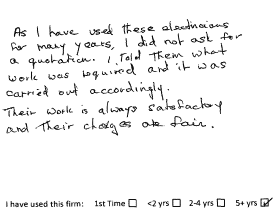 As I have used these electricians
for many years, I did not ask for
a quotation. I told them what
work was required and it was
carried out accordingly.
Their work is always satisfactory
and their charges are fair.
I have used this firm: 1st Time ☐ <2 yrs ☐ 2-4 yrs ☐ 5+ yrs ☑